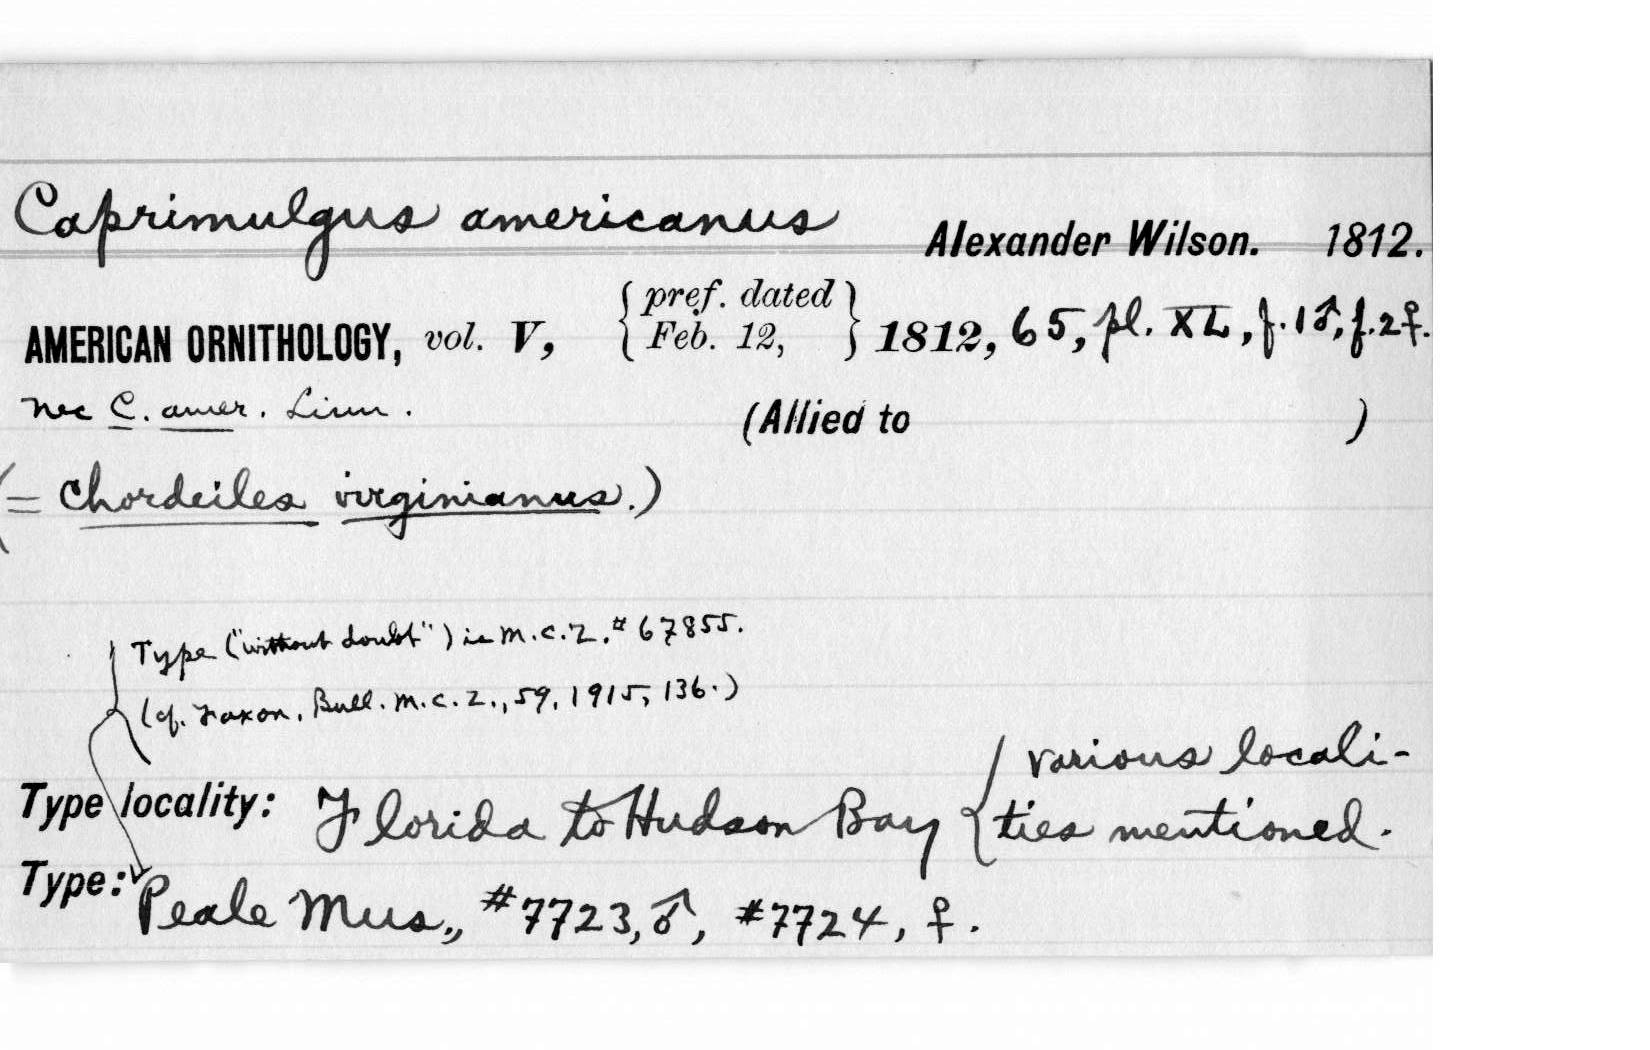 Caprimulgus americanus Alexander Wilson. 1812.
AMERICAN ORNITHOLOGY, vol. V, { pref. dated Feb. 12, } 1812, 65, pl. XL, f. 1 ♂, f. 2 ♀.
nec C. amer. Linn. (Allied to )
(= Chordeiles virginianus.)
Type ("without doubt") is M.C.Z. # 67855.
(cf. Faxon, Bull. M.C.Z., 59, 1915, 136.)
various locali-
Type locality: Florida to Hudson Bay { ties mentioned.
Type: Peale Mus., #7723, ♂, #7724, ♀.